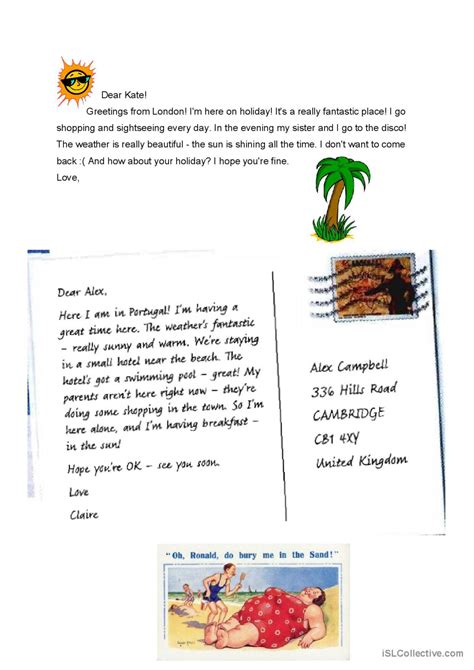 Dear Kate!
Greetings from London! I'm here on holiday! It's a really fantastic place! I go
shopping and sightseeing every day. In the evening my sister and I go to the disco!
The weather is really beautiful - the sun is shining all the time. I don't want to come
back :( And how about your holiday? I hope you're fine.
Love,
Dear Alex,
Here I am in Portugal! I'm having a
great time here. The weather's fantastic
– really sunny and warm. We're staying
in a small hotel near the beach. The
hotel's got a swimming pool – great! My
parents aren't here right now – they're
doing some shopping in the town. So I'm
here alone, and I'm having breakfast –
in the sun!
Hope you're OK – see you soon.
Love
Claire
Alex Campbell
336 Hills Road
CAMBRIDGE
CB1 4XY
United Kingdom
"Oh, Ronald, do bury me in the Sand!"
iSLCollective.com